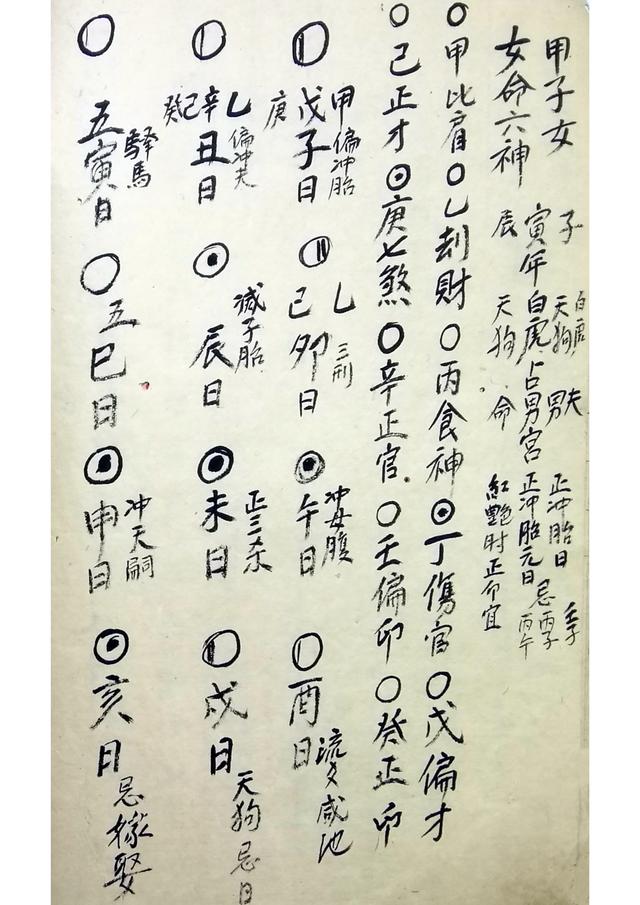 甲子女
女命六神
子 白虎 天狗 男夫 正冲胎日
寅年白虎占男宫 正冲胎元日 忌丙子 丙午 壬子
辰 天狗 命 红艳时正卯宜
○甲比肩○乙刦財○丙食神⊙丁傷官○戊偏才
○己正才⊙庚七煞○辛正官○壬偏卯○癸正卯
庚戊子日 甲偏冲胎
己卯日 乙三刑
午日 冲母腹
酉日 流 咸池
癸己辛丑日 乙偏冲夫
辰日 滅子胎
未日 正三杀
戌日 天狗忌日
五寅日 驿馬
五巳日
申日 冲天嗣
亥日 忌嫁娶